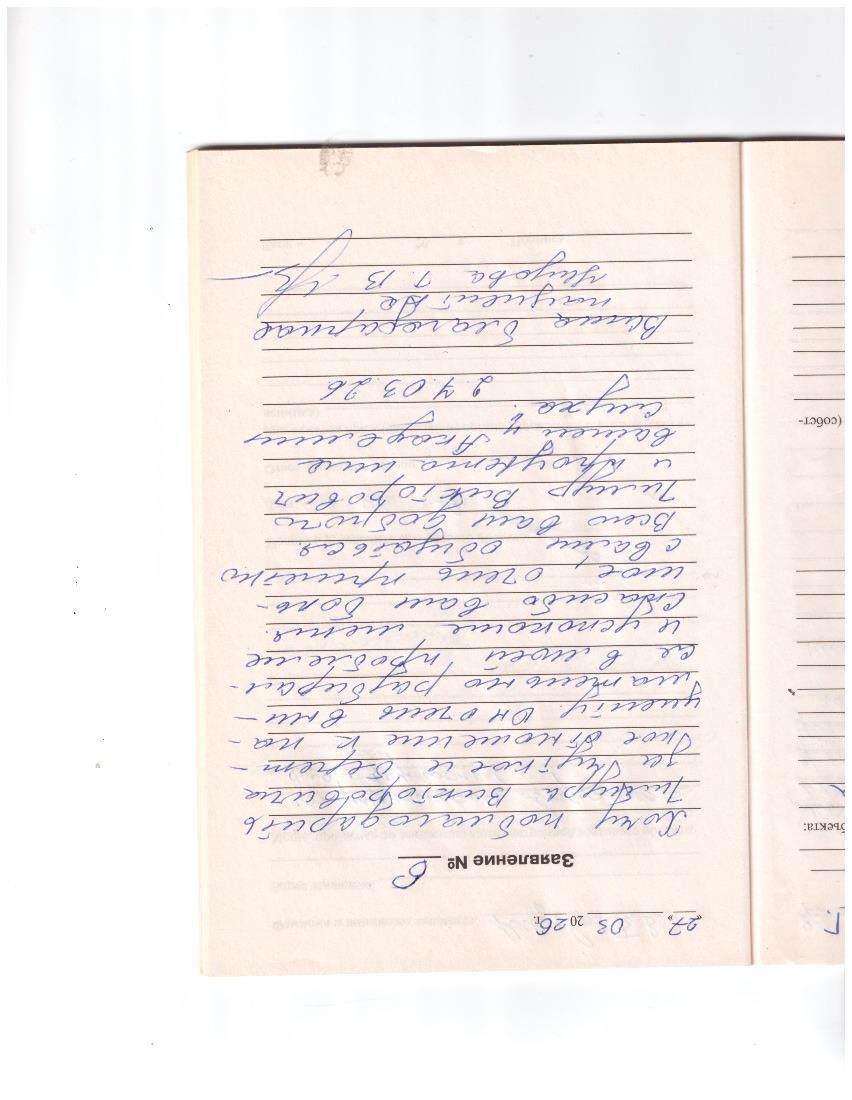 «27» 03 2026 г.
Заявление № 6
Хочу поблагодарить
Тимура Викторовича
за чуткое и береж-
ное отношение к па-
циенту. Он очень вни-
мательно разбирал-
ся в моей проблеме
и успокоил меня.
Спасибо вам боль-
шое, очень приятно
с вами общаться.
Всего вам доброго
Тимур Викторович
и процветания
вашей Академии
слуха.
27.03.26
Ваша благодарная
пациентка
Т. В
(собст-
бъекта:
Г.